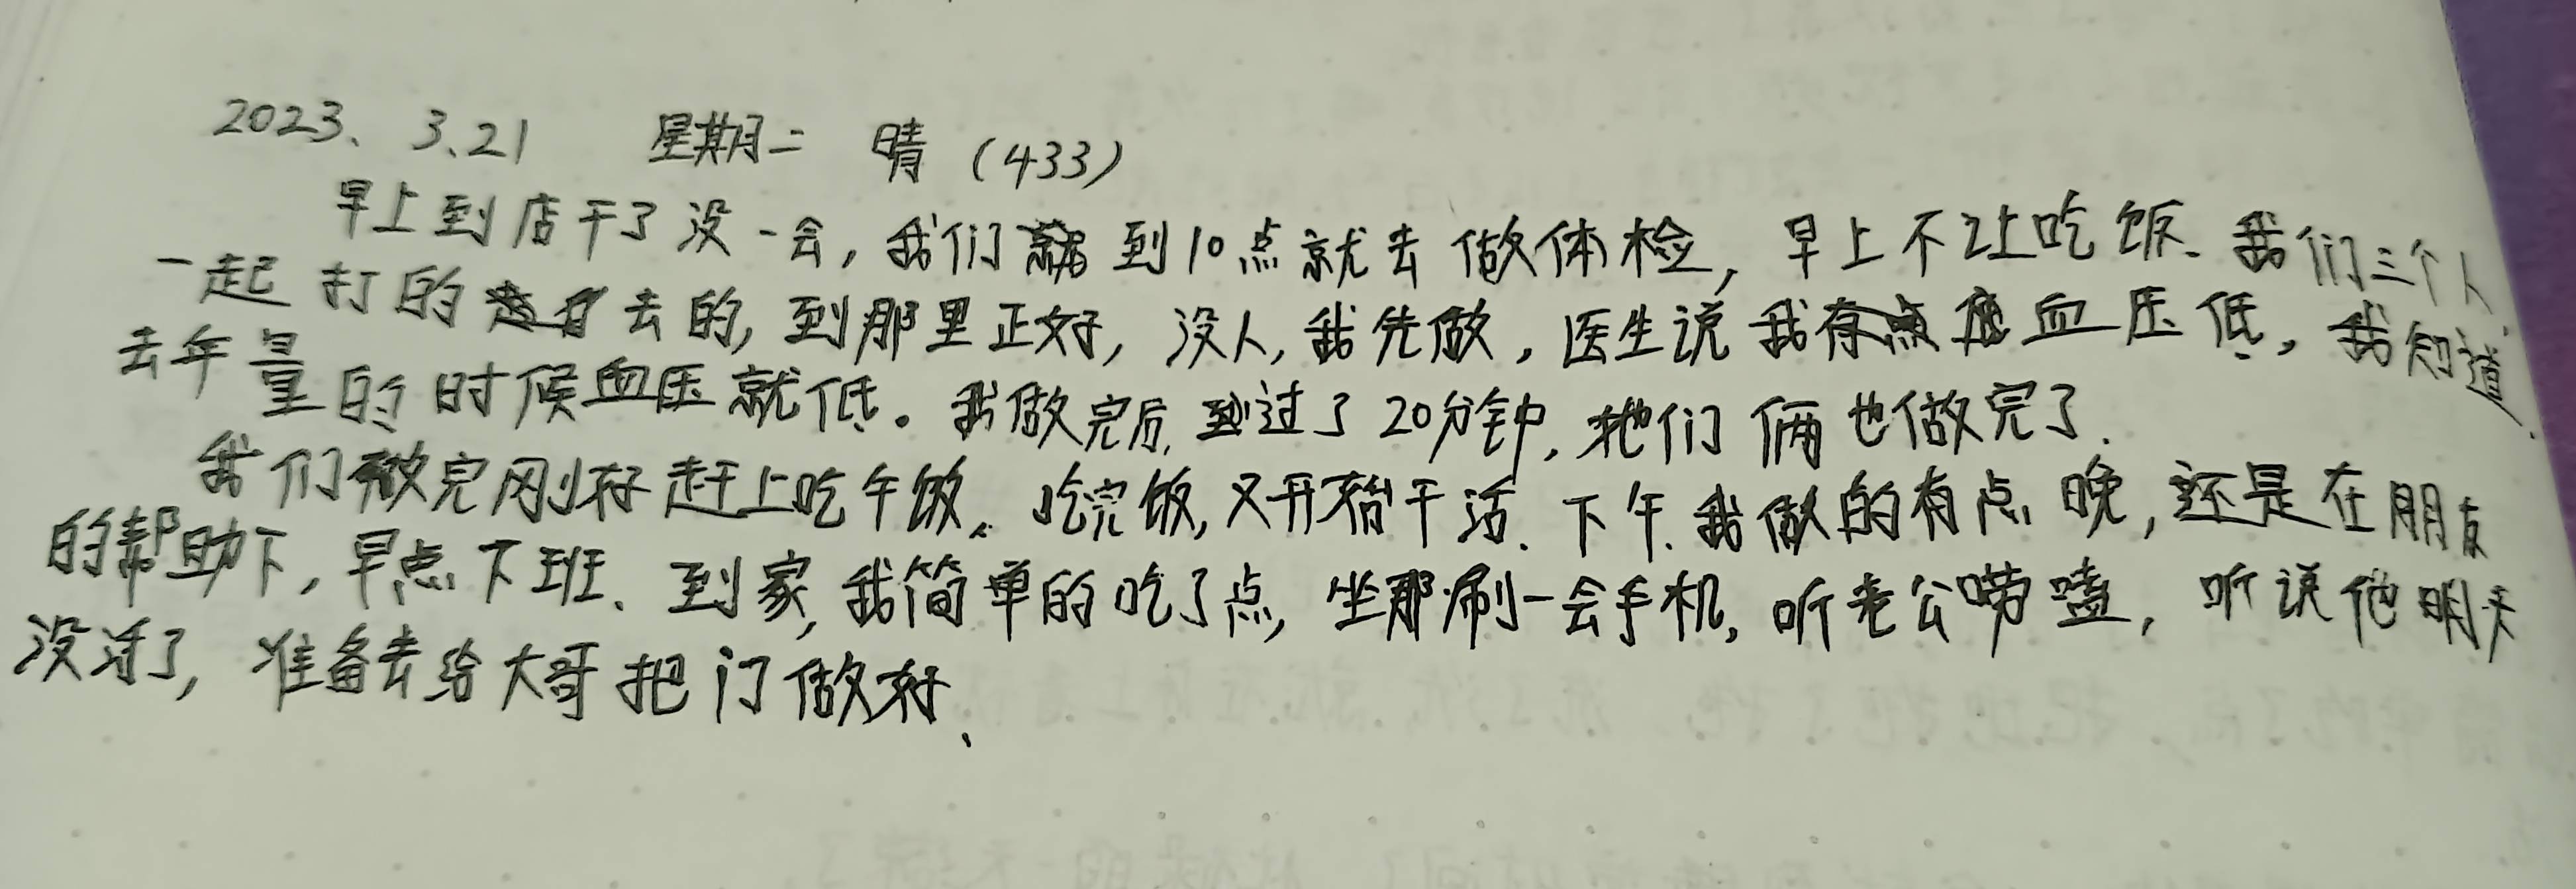 2023、3、21 星期二 晴（433）
早上到店干了没一会，我们到10点就去做体检，早上不让吃饭、我们三个人
一起打的去的，到那里正好，没人，我先做，医生说我血压低，我知道，
去年量的时候血压就低。我做完后，过了20分钟，她们俩也做完了.
我们做完刚好赶上吃午饭。吃完饭，又开始干活.下午.我做的有点晚，还是在朋友
的帮助下，早点下班、到家，我简单的吃了点，坐那刷一会手机，听老公唠嗑，听说他明天
没活了，准备去给大哥把门做好、